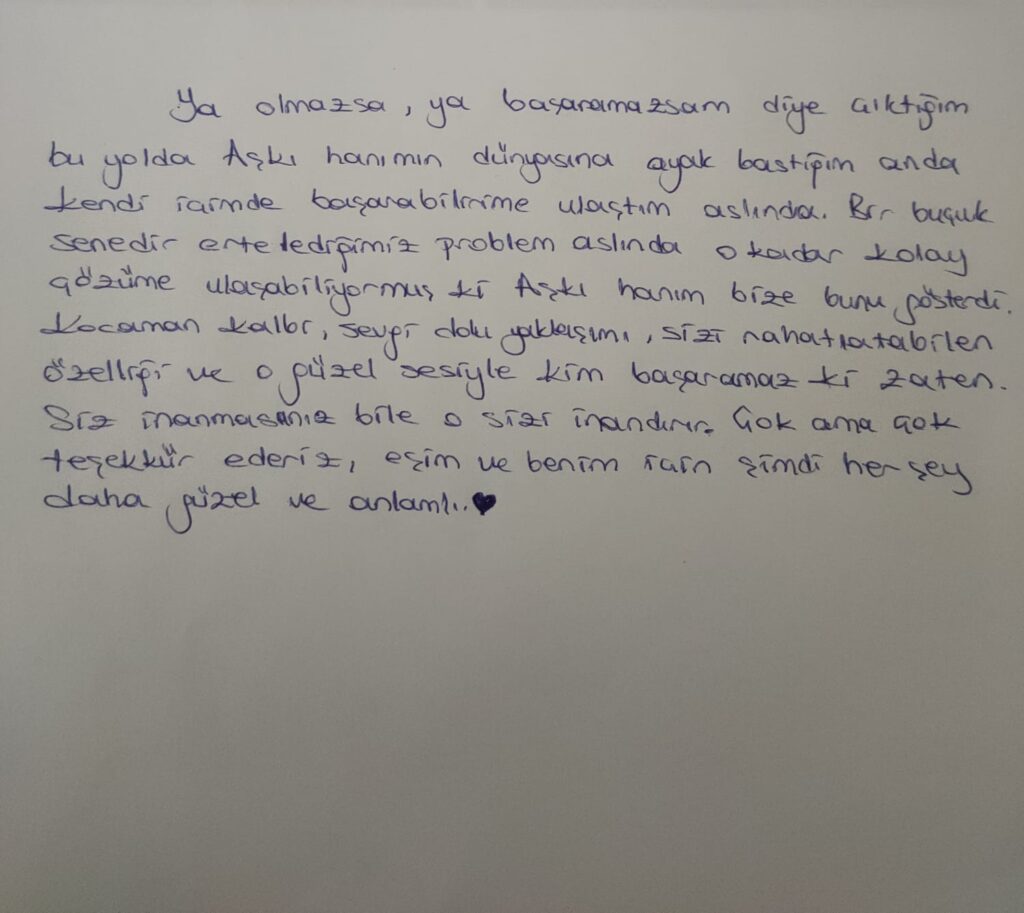 Ya olmazsa, ya başaramazsam diye çıktığım
bu yolda Aşkı hanımın dünyasına ayak bastığım anda
kendi içimde başarabilirime ulaştım aslında. Bir buçuk
senedir ertelediğimiz problem aslında o kadar kolay
çözüme ulaşabiliyormuş ki Aşkı hanım bize bunu gösterdi.
Kocaman kalbi, sevgi dolu yaklaşımı, sizi rahatlatabilen
özelliği ve o güzel sesiyle kim başaramaz ki zaten.
Siz inanmasanız bile o sizi inandırır. Çok ama çok
teşekkür ederiz, eşim ve benim için şimdi her şey
daha güzel ve anlamlı..♥